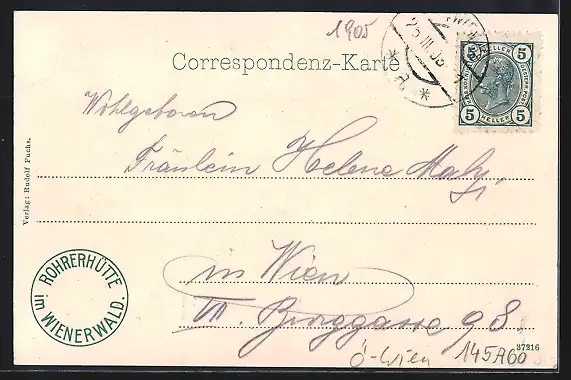 1905
WIEN
25.III.05
Correspondenz-Karte
5 HELLER 5
5 HELLER 5
Wohlgeboren
Fräulein Helene
in Wien
Burggasse 98
Verlag: Rudolf Fuchs.
ROHRERHÜTTE
im WIENERWALD.
37216
Ö-Wien 145A60